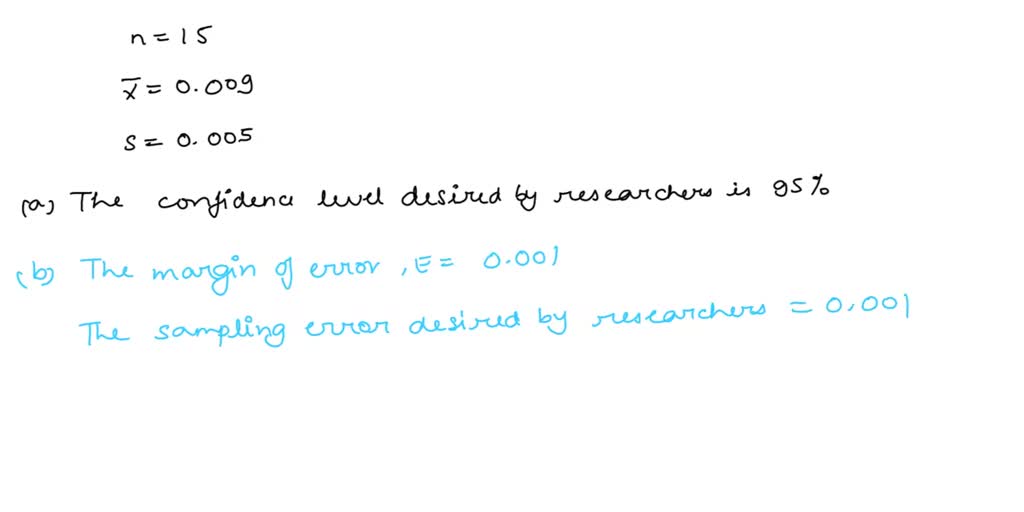 n = 15
x̄ = 0.009
s = 0.005
(a) The confidence level desired by researchers is 95%
(b) The margin of error, E = 0.001
The sampling error desired by researchers = 0.001